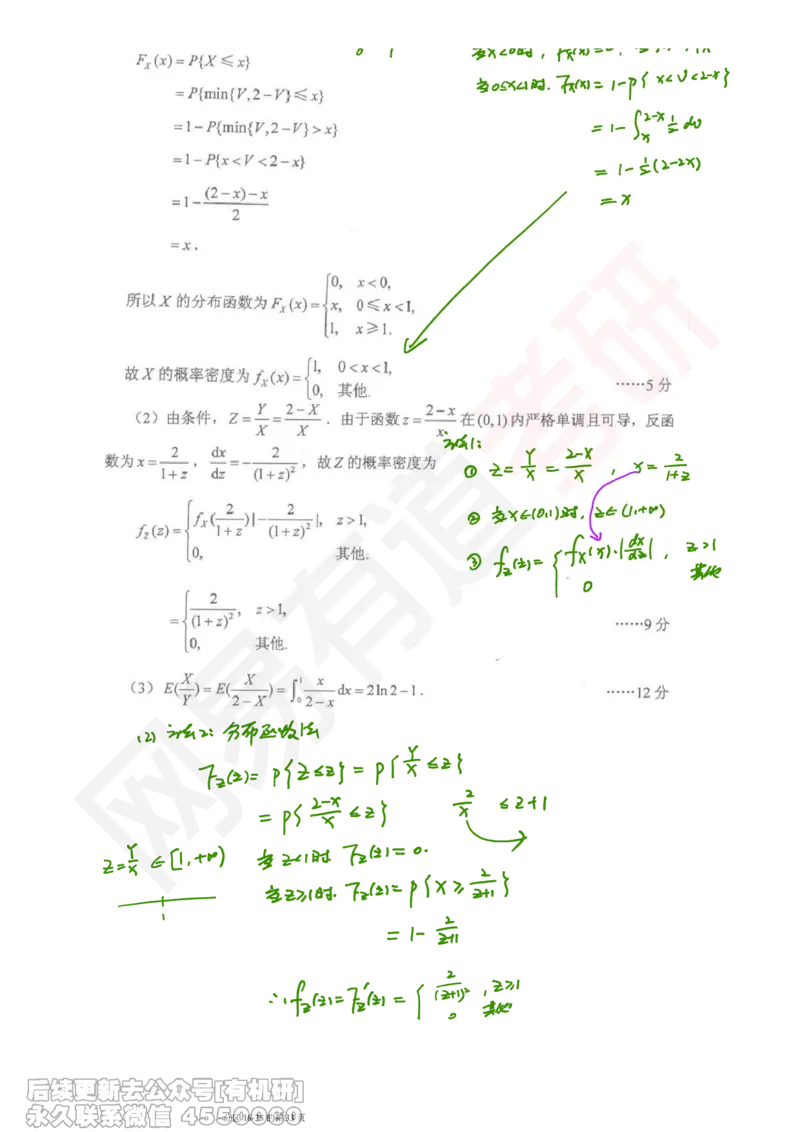 F_X(x)=P{X≤x}
=P{min{V,2-V}≤x}
=1-P{min{V,2-V}>x}
=1-P{x<V<2-x}
=1-\frac{(2-x)-x}{2}
=x,
0 1
当0≤x<1时. F_X(x)=1-P{x<V<2-x}
=1-∫_x^{2-x} \frac{1}{2} dv
=1-\frac{1}{2}(2-2x)
=x
所以 X 的分布函数为 F_X(x)={0, x<0,
x, 0≤x<1,
1, x≥1.
故 X 的概率密度为 f_X(x)={1, 0<x<1,
0, 其他.
……5 分
(2) 由条件, Z=\frac{Y}{X}=\frac{2-X}{X}. 由于函数 z=\frac{2-x}{x} 在(0,1)内严格单调且可导, 反函
数为 x=\frac{2}{1+z}, \frac{dx}{dz}=-\frac{2}{(1+z)^2}, 故 Z 的概率密度为
f_Z(z)={f_X(\frac{2}{1+z})|-\frac{2}{(1+z)^2}|, z>1,
0, 其他.
={\frac{2}{(1+z)^2}, z>1,
0, 其他.
……9 分
方法1:
① Z=\frac{Y}{X}=\frac{2-X}{X}, x=\frac{2}{1+z}
② 当x∈(0,1)时, z∈(1,+∞)
③ f_Z(z)={f_X(x)·|\frac{dx}{dz}|, z>1
0 其他
(3) E(\frac{X}{Y})=E(\frac{X}{2-X})=∫_0^1 \frac{x}{2-x}dx=2ln2-1.
……12 分
(2) 方法2: 分布函数法
F_Z(z)=P{Z≤z}=P{\frac{Y}{X}≤z}
=P{\frac{2-X}{X}≤z} \frac{2}{X} ≤z+1
Z=\frac{Y}{X}∈[1,+∞) 当z<1时 F_Z(z)=0.
当z≥1时. F_Z(z)=P{X≥\frac{2}{z+1}}
1
=1-\frac{2}{z+1}
∴ f_Z(z)=F_Z'(z)={\frac{2}{(z+1)^2}, z≥1
0 其他
网易有道考研
后续更新去公众号[有机研]
永久联系微信 4550900